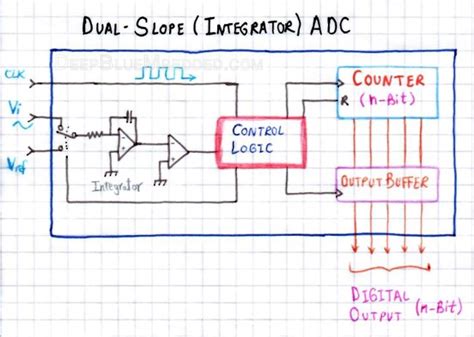 DUAL-SLOPE (INTEGRATOR) ADC
DEEPBLUEMBEDDED.COM
CLK
Vi
Vref
Integrator
CONTROL
LOGIC
COUNTER
R (n-Bit)
OUTPUT BUFFER
DIGITAL
OUTPUT (n-Bit)